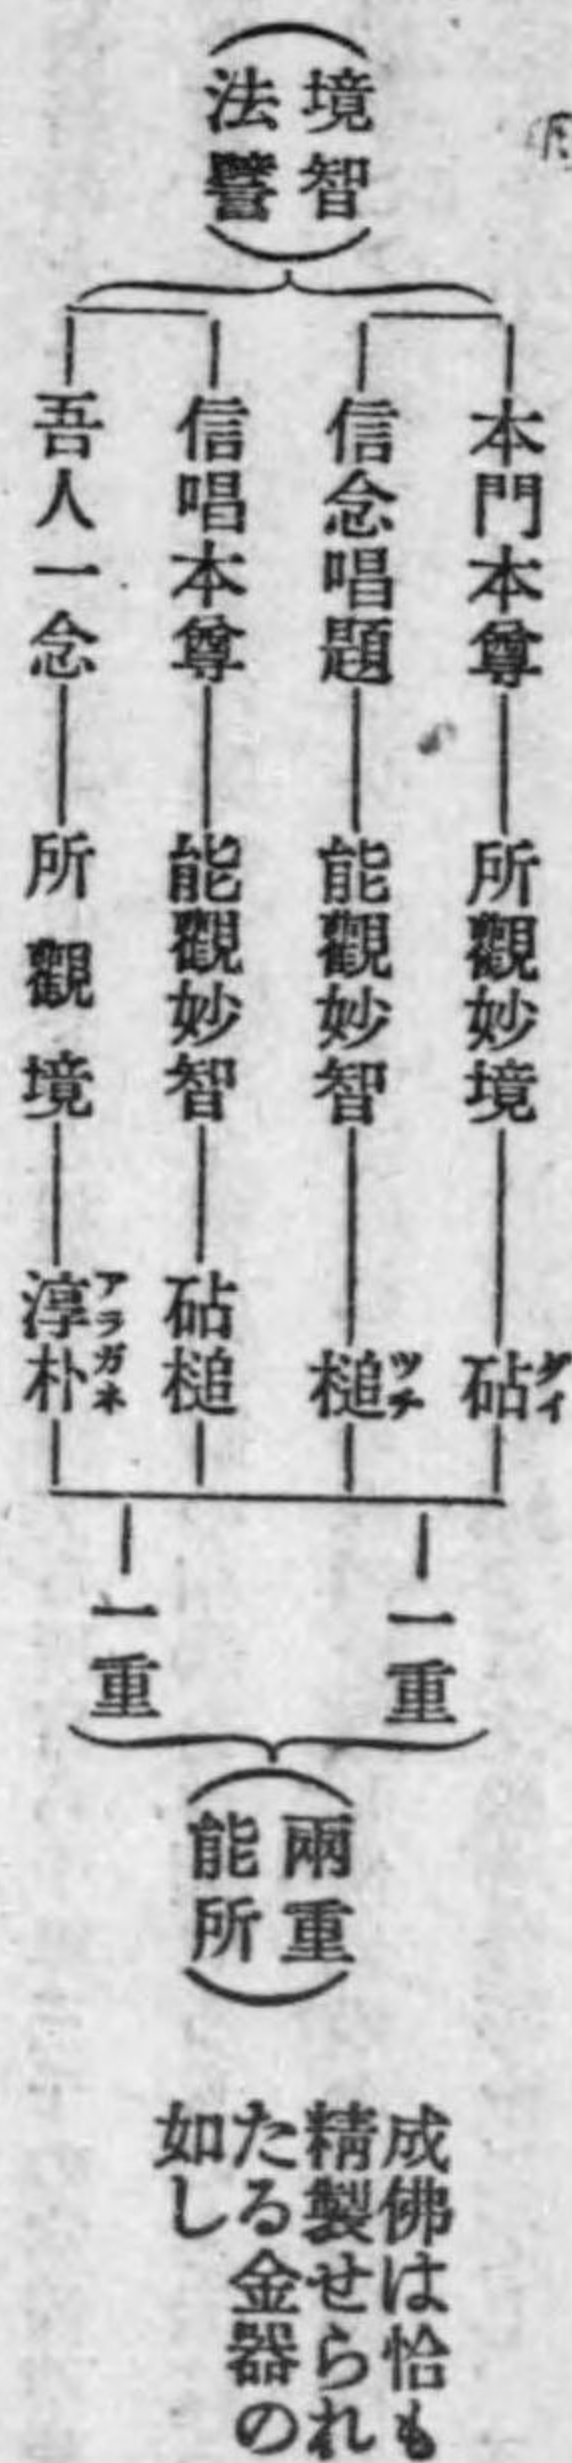 境智
法譬
本門本尊
所觀妙境
砧
ダイ
信念唱題
能觀妙智
槌
ツチ
信唱本尊
能觀妙智
砧槌
吾人一念
所觀境
淳朴
アラガネ
一重
一重
兩重
能所
成佛は恰も
精製せられ
たる金器の
如し